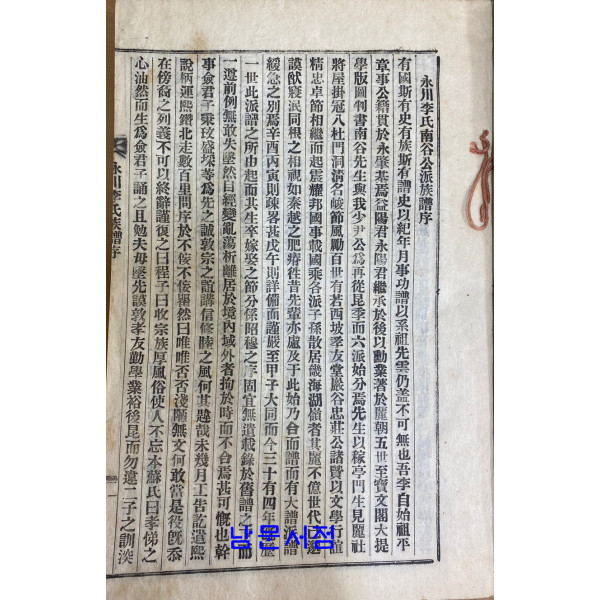 永川李氏南谷公派族譜序
有國斯有史有族斯有譜史以紀年月事功譜以系祖先雲仍盖不可無也吾李自始祖平
章事公籍貫於永肇基焉益陽君永陽君繼承於後以勳業著於麗朝五世至寶文閣大提
學版圖判書南谷先生與我少尹公爲再從昆季而六派始分焉先生以稼亭門生見麗社
將屋掛冠入杜門洞清名峻節風勵百世有若西坡孝友堂巖谷忠莊公諸賢以文學行誼
精忠卓節相繼而起震耀邦國事載國乘各派子孫散居畿海湖嶺者其麗不億世代已遠
謨猷寖泯同根之相視如秦越之肥瘠徃昔先輩亦處及于此始乃合而譜而有大譜派譜
緩急之別焉辛酉丙寅則疎畧甚戊午則詳備而謹嚴至甲子大同而今三十有四年
一世此派譜之所由起而其生卒嫁娶之節分係昭穆之序固宜無遺載錄於舊譜之
一遵前例無敢失墜然曰經變亂蕩析離居於境內域外者拘於時而不合焉甚可慨也幹
事僉君子乘玫盛琛等爲先之誠敦宗之誼講信修睦之風何其韙哉未幾月工告訖遣熙
說柄運熙鑽北走數百里問序於不佞不佞瞿然曰唯唯否否淺陋無文何敢當是役旣忝
在傍裔之列義不可以終辭謹復之曰程子曰收宗族厚風俗使人不忘本蘇氏曰孝悌之
心油然而生爲僉君子誦之且勉夫毋墜先謨敦孝友勸學業裕後昆而勿違二子之訓深
永川李氏族譜序
一
남문서점